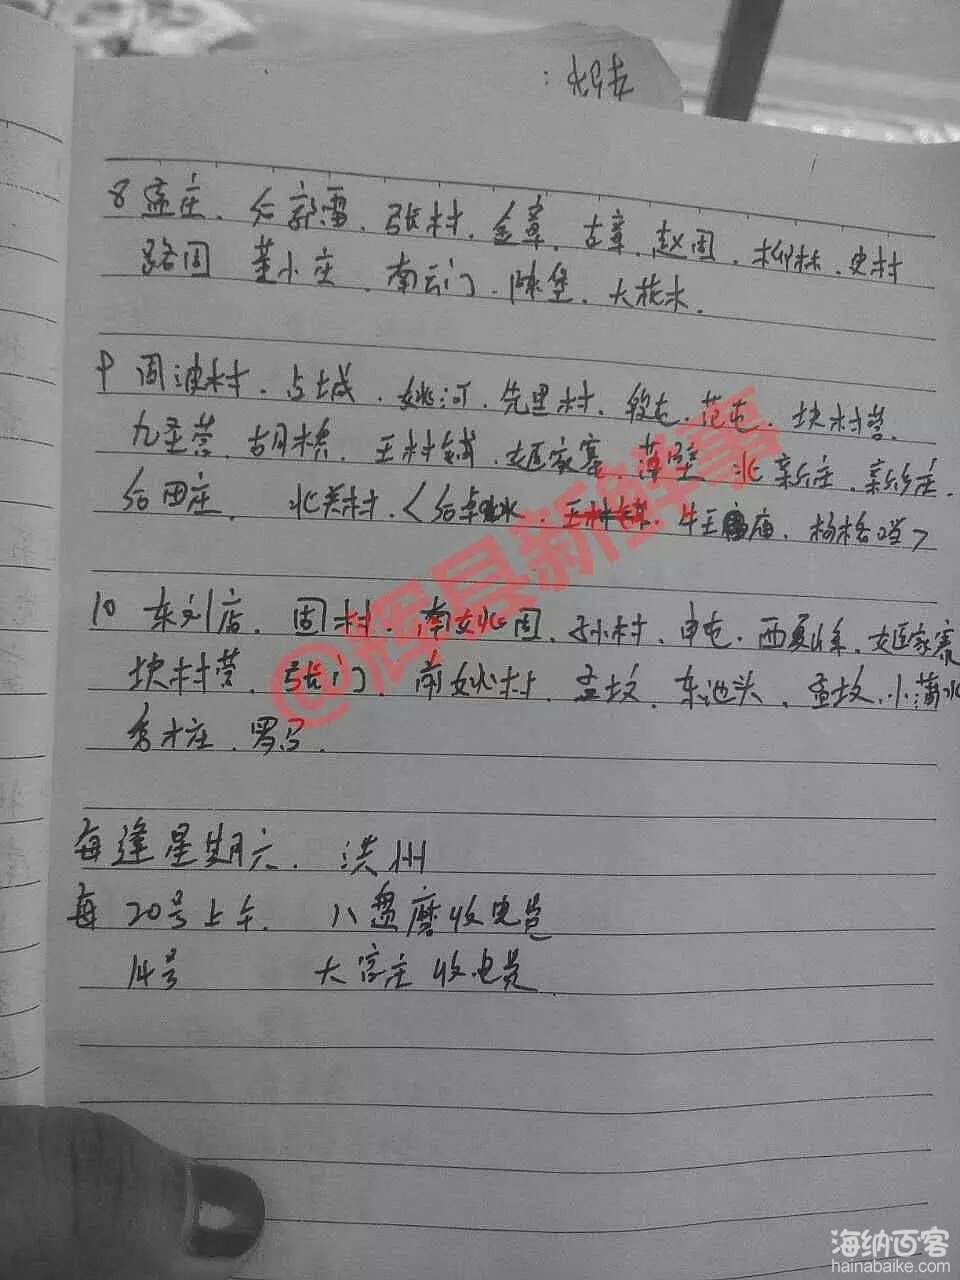 8 孟庄. 后郭雷. 张村. 金章. 古章. 赵固. 柳林. 史村
路固 董小庄. 南云门. 陈堡. 大花木.
中 固波村. 占城. 姚河. 先里村. 段屯. 范屯. 块村营.
九圣营. 胡桥. 王村铺. 姬家寨. 薄壁 北新庄.
后田庄. 北关村. 牛王庙. 杨格
10 东刘店. 固村. 南姚固. 孙村. 申屯. 西夏峰. 姬家寨
块村营. 张门. 南姚村. 孟坟. 东池头. 孟坟. 小蒲水
秀才庄. 罗马.
每逢星期六. 洪州
每 20号上午. 八盘磨收电费
14号 大官庄收电费
@辉县新鲜事
海纳百客
hainabaike.com